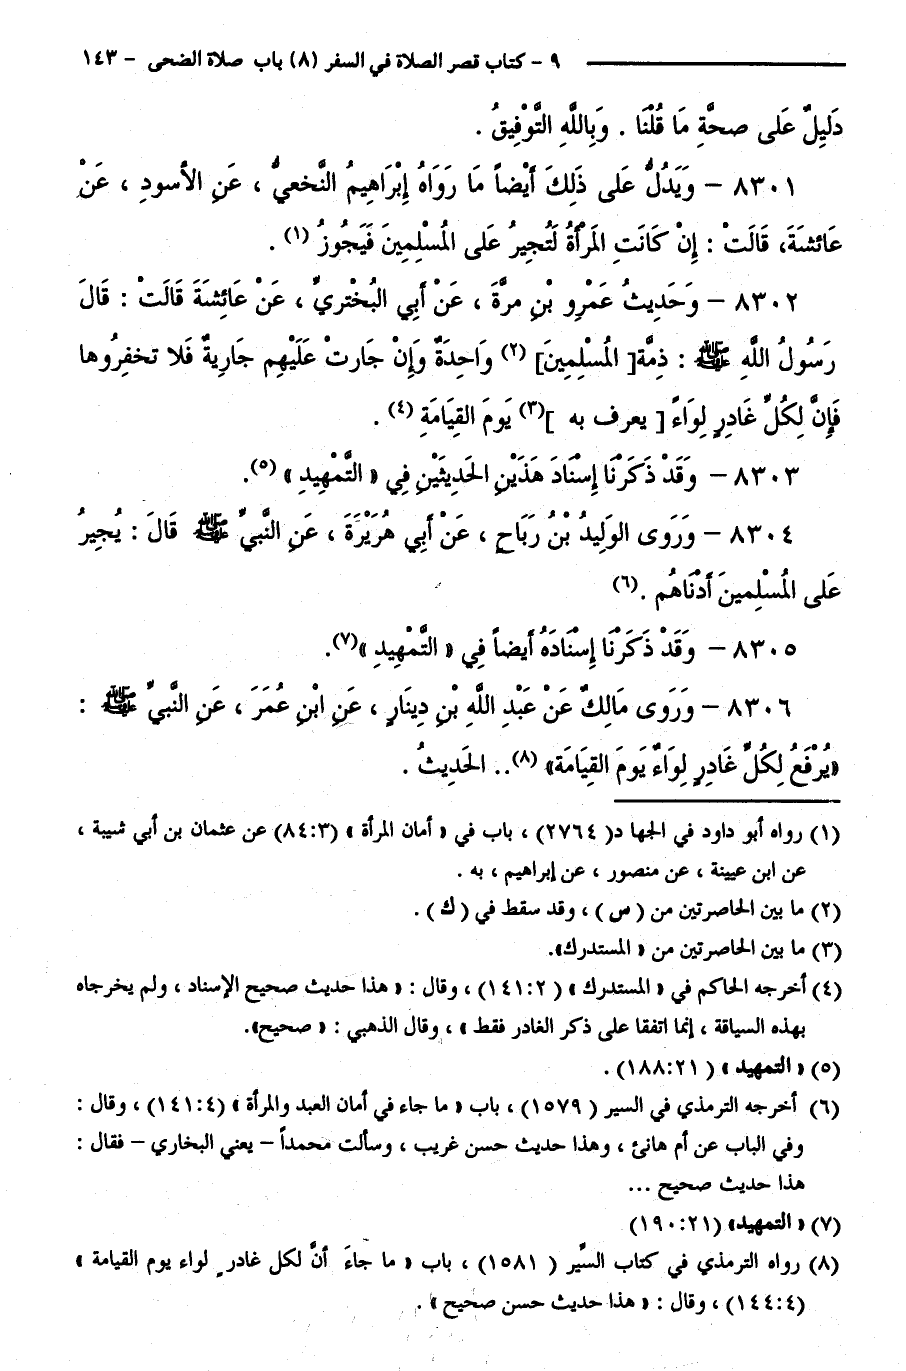 ٩ - كتاب قصر الصلاة في السفر (٨) باب صلاة الضحى - ١٤٣
دَلِيلٌ عَلى صحَّةِ مَا قُلْنَا . وَبِاللَّهِ التَّوْفِيقُ .
٨٣٠١ – وَيَدُلُّ عَلى ذَلِكَ أَيْضاً مَا رَوَاهُ إِبْرَاهِيمُ النَّخعيُّ ، عَنِ الأسودِ ، عَنْ
عَائشَةَ، قَالَتْ : إِنْ كَانَتِ المَرْأَةُ لَتُجيرُ عَلى المُسْلِمِينَ فَيَجُوزُ (١) .
٨٣٠٢ – وَحَدِيثُ عَمْرِو بْنِ مرَّةَ ، عَنْ أَبي البُخْتَرِيِّ ، عَنْ عَائشَةَ قَالَتْ : قَالَ
رَسُولُ اللَّهِ ﷺ : ذِمَّة[ المُسْلِمِينَ] (٢) وَاحِدَةٌ وَإِنْ جَارتْ عَلَيْهِم جَارِيةٌ فَلا تخفِرُوها
فَإِنَّ لِكُلِّ غَادِرٍ لِوَاءً [ يعرف به ](٣) يَومَ القِيَامَةِ (٤) .
٨٣٠٣ – وَقَدْ ذَكَرْنَا إِسْنَادَ هَذَيْنِ الحَدِيثَيْنِ فِي « التَّمْهِيدِ » (٥).
٨٣٠٤ – وَرَوى الوَلِيدُ بْنُ رَبَاحٍ ، عَنْ أَبِي هُرَيْرَةَ ، عَنِ النَّبيِّ ﷺ قَالَ : يُجيرُ
عَلى المُسْلِمينَ أَدْنَاهُم .(٦)
٨٣٠٥ – وَقَدْ ذَكَرْنَا إِسْنَادَهُ أَيضاً فِي « التَّمْهِيدِ »(٧).
٨٣٠٦ – وَرَوى مَالِكٌ عَنْ عَبْدِ اللَّهِ بْنِ دِينَارٍ ، عَنِ ابْنِ عُمَرَ ، عَنِ النَّبيِّ ﷺ :
«يُرْفَعُ لِكُلِّ غَادِرٍ لِوَاءٌ يَومَ القِيَامَة» (٨).. الحَدِيثُ .
(١) رواه أبو داود في الجها د( ٢٧٦٤) ، باب في « أمان المرأة » (٨٤:٣) عن عثمان بن أبي شيبة ،
عن ابن عيينة ، عن منصور ، عن إبراهيم ، به .
(٢) ما بين الحاصرتين من ( س ) ، وقد سقط في ( ك ) .
(٣) ما بين الحاصرتين من « المستدرك».
(٤) أخرجه الحاكم في « المستدرك » (١٤١:٢) ، وقال : « هذا حديث صحيح الإسناد ، ولم يخرجاه
بهذه السياقة ، إنما اتفقا على ذكر الغادر فقط » ، وقال الذهبي : « صحيح».
(٥) « التمهيد » ( ١٨٨:٢١) .
(٦) أخرجه الترمذي في السير ( ١٥٧٩) ، باب « ما جاء في أمان العبد والمرأة » (١٤١:٤) ، وقال :
وفي الباب عن أم هانئ ، وهذا حديث حسن غريب ، وسألت محمداً – يعني البخاري – فقال :
هذا حديث صحيح ...
(٧) « التمهيد» (١٩٠:٢١)
(٨) رواه الترمذي في كتاب السِّير ( ١٥٨١) ، باب « ما جاءَ أنَّ لكل غادرٍ لواء يوم القيامة »
(١٤٤:٤) ، وقال : « هذا حديث حسن صحيح » .